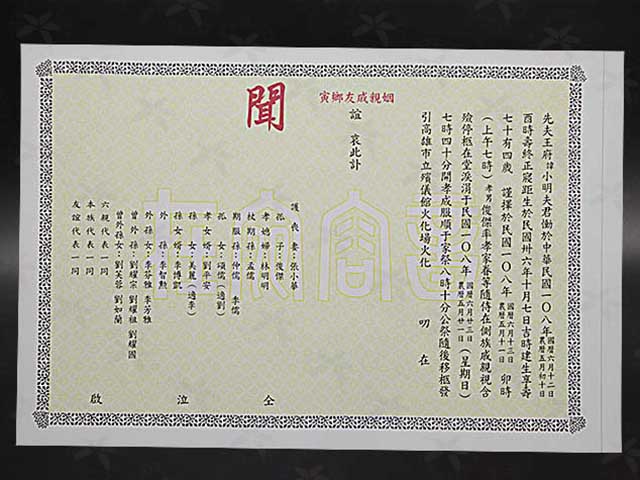 先夫王府諱小明夫君慟於中華民國一０八年國曆六月十二日農曆五月初十日
酉時壽終正寢距生於民國卅六年十月七日吉時建生享壽
七十有四歲 謹擇於民國一０八年國曆六月十三日農曆五月十一日卯時
(上午七時)孝男俊傑率孝家眷等隨侍在側族戚親視含
殮停柩在堂淚涓于民國一０八年國曆六月廿三日農曆五月廿一日(星期日)
七時四十分開孝成服順于家祭八時十分公祭隨後移柩發
引高雄市立殯儀館火化場火化
叨 在
姻親戚友鄉寅
誼 哀此訃
聞
護喪妻:張小華
孤子:俊傑
孝媳婦:林明明
杖期孫:孟儒
期服孫:仲儒 季儒
孤女:頌儒(適劉)
孝女婿:劉平安
孫女:美麗(適李)
孫女婿:李博凱
外孫:李智勲
外孫女:李芬雅 李芳雅
曾外孫:劉耀宗 劉耀祖 劉耀國
曾外孫女:劉芙蓉 劉如蘭
六親代表一同
本族代表一同
友誼代表一同
仝 泣 啟